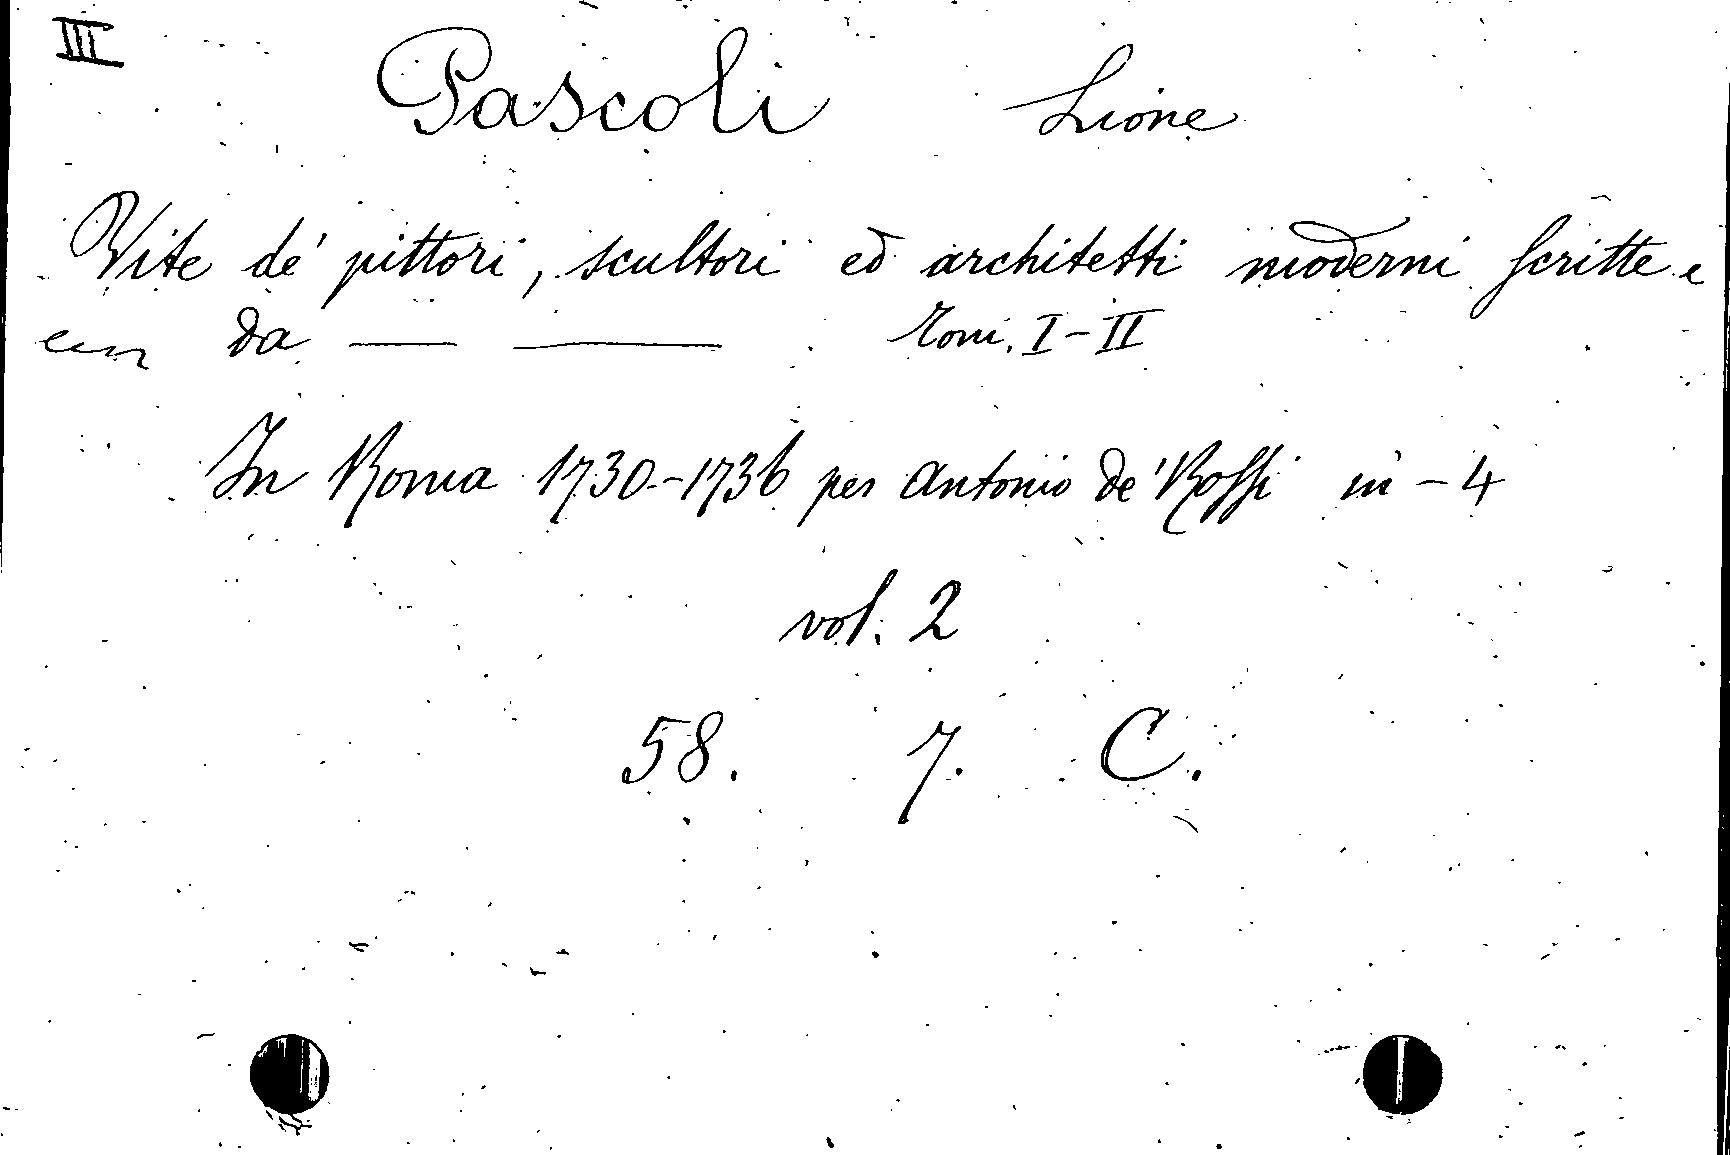 III Pascoli Lione
Vite de' pittori, scultori ed architetti moderni scritte e
da — — Tom. I-II
In Roma 1730-1736 per Antonio de' Rossi in-4
vol. 2
58. 7. C.